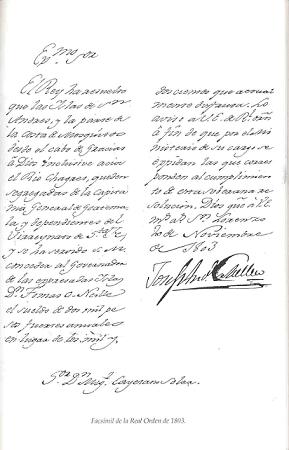 Exmo. Sor.
El Rey ha resuelto
que las Islas de Sn.
Andres, y la parte de
la costa de Mosquitos
desde el cabo de Gracias
a Dios inclusive acia
el Rio Chagres, queden
segregadas de la Capita
nia General de Goatema
la, y dependientes del
Virreynato de Sta. Fe,
y se ha servido S. M.
conceder al Governador
de las expresadas Islas
Dn. Tomas O-Neille
el sueldo de dos mil pe
sos fuertes anuales
en lugar de los mil y
doscientos que actual
mente disfruta. Lo
aviso a V.E. de Rl. orn.
a fin de que por el Mi
nisterio de su cargo se
expidan las que corres
ponden al cumplimien
to de esta soberana re
solucion. Dios gue. a V.E.
ms. as. Sn. Lorenzo
de Noviembre
de 1803
Sor. Dn. Migl. Cayetano Soler.
Facsímil de la Real Orden de 1803.